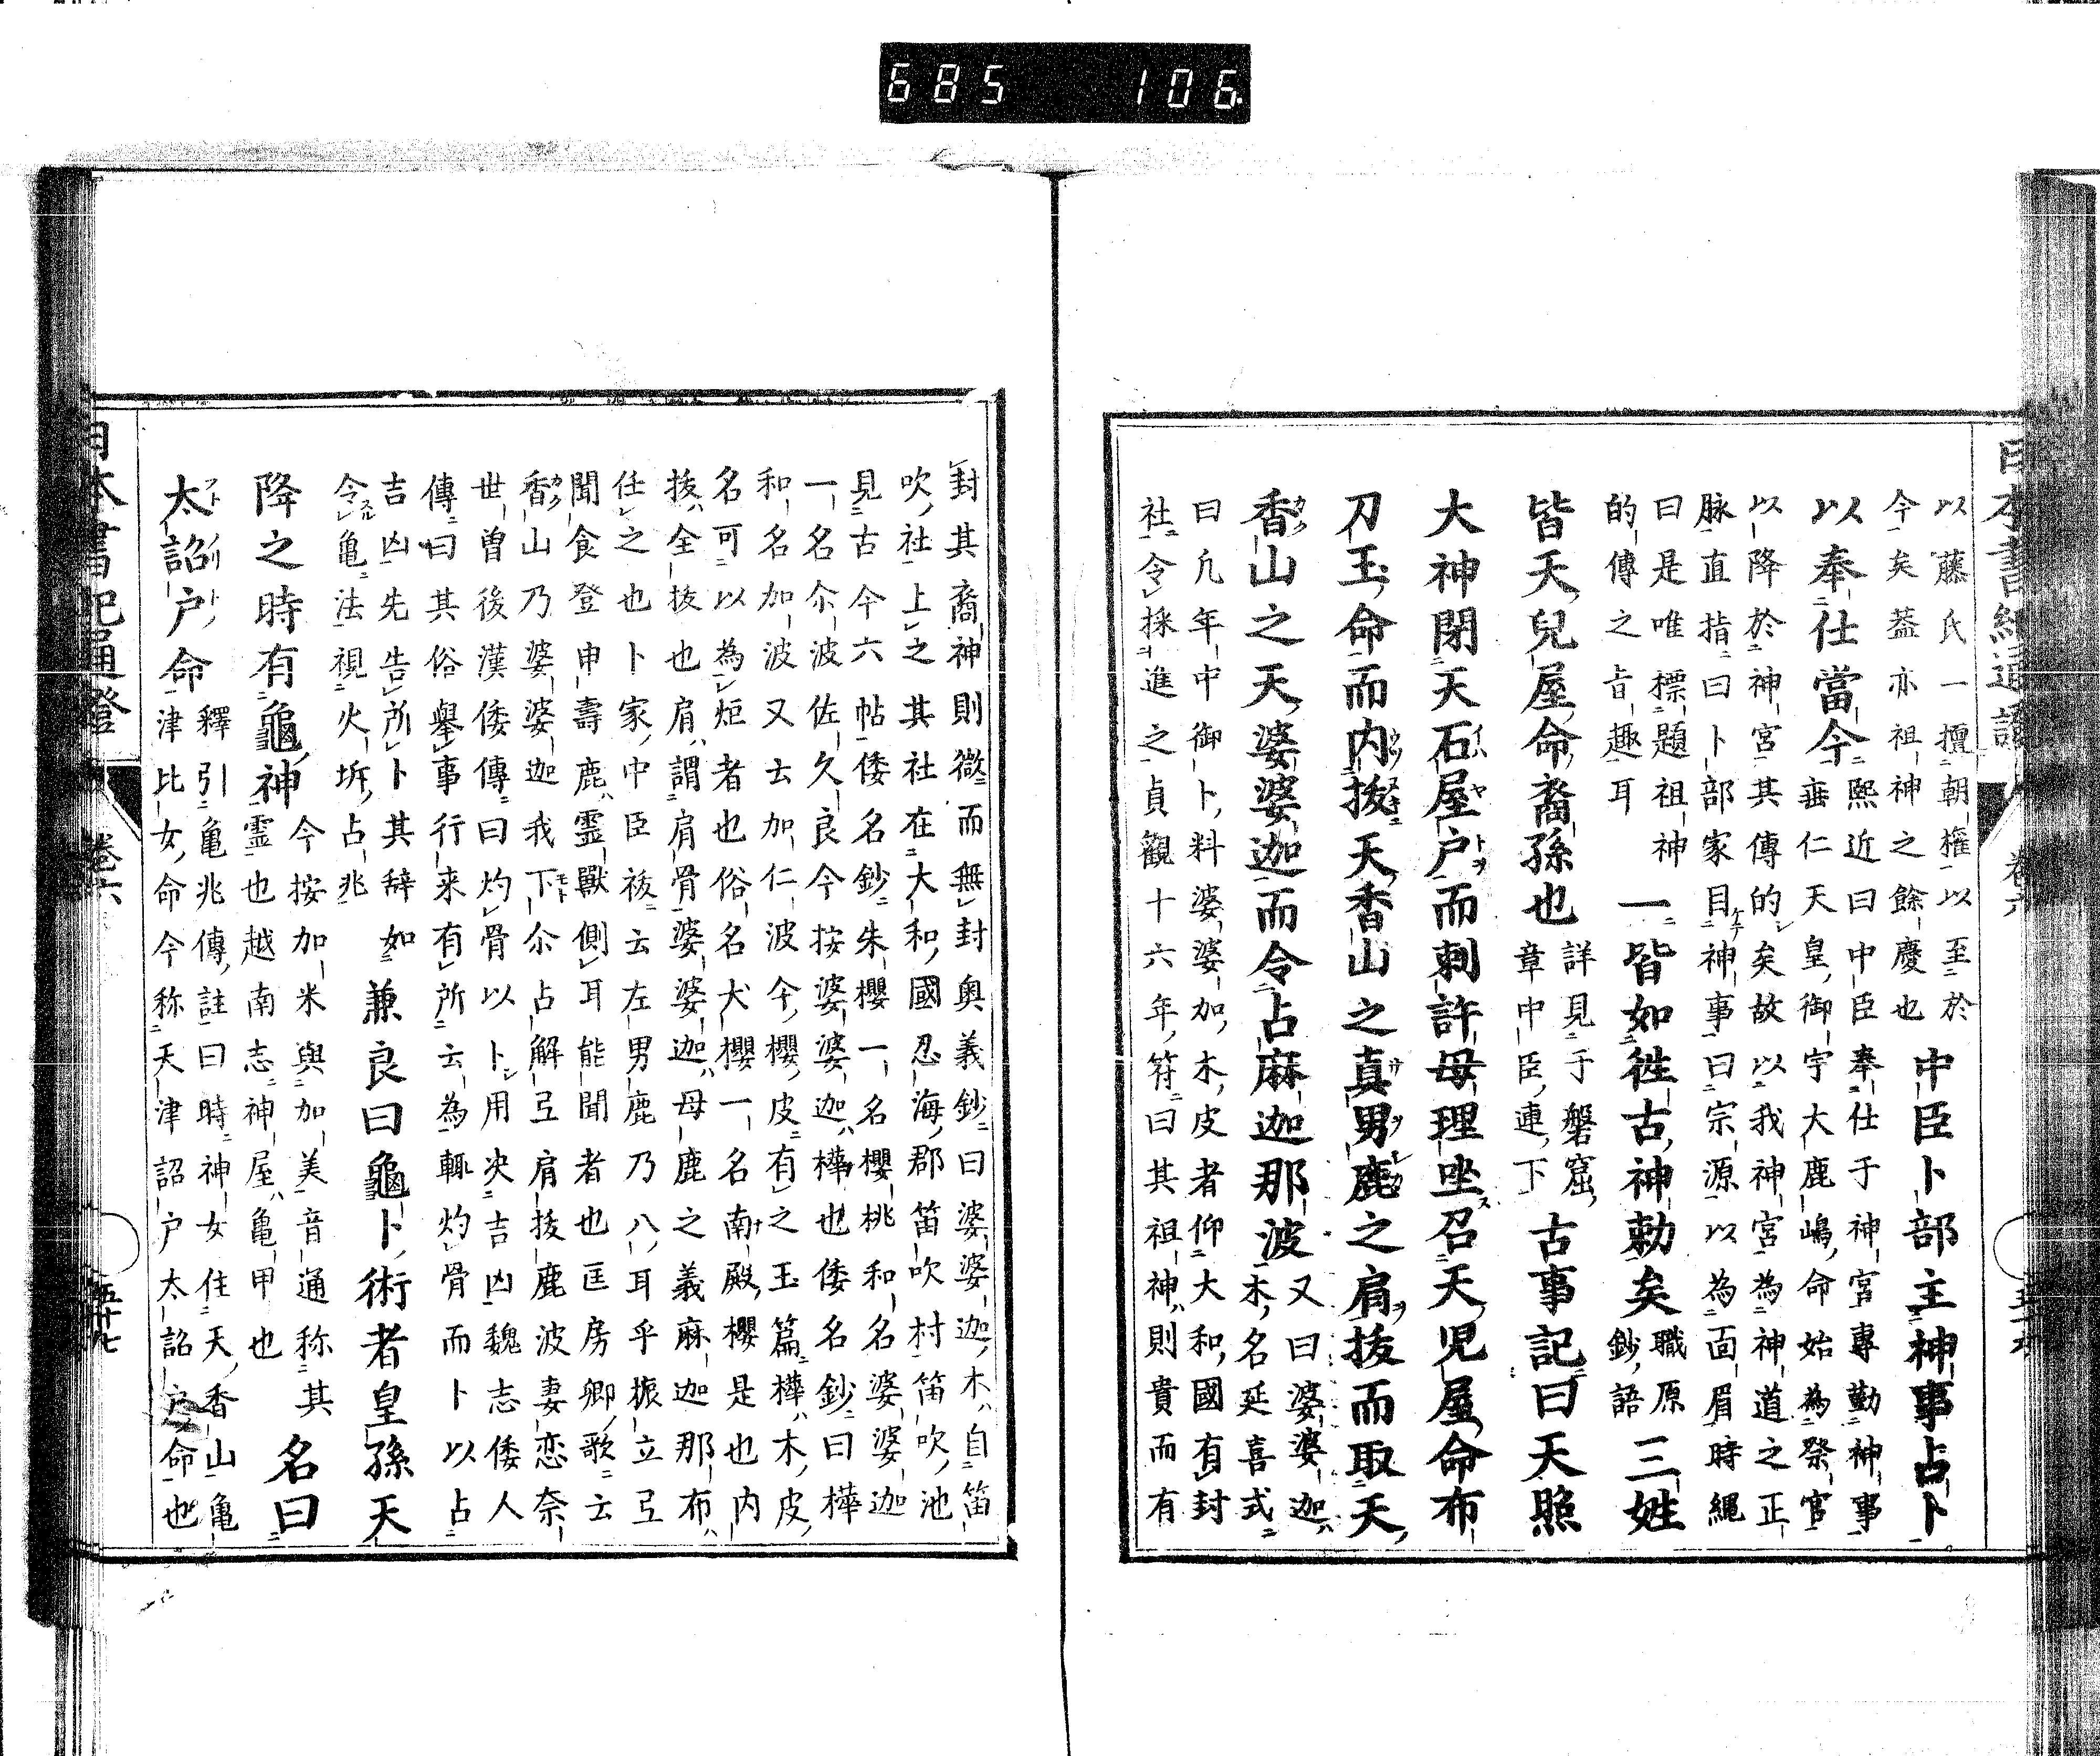 685 106
日本書紀通證
卷六
以藤氏一擅朝權以至於
今矣蓋亦祖神之餘慶也
中臣卜部主神事占卜
以奉仕當今
熙近曰中臣奉仕于神宮專勤神事
垂仁天皇御宇大鹿嶋命始為祭官
以降於神宮其傳的矣故以我神宮為神道之正
脉直指曰卜部家目神事曰宗源以為面眉時縄
曰是唯標題祖神
的傳之旨趣耳
一皆如徃古神勅矣
職原
鈔語
三姓
皆天兒屋命裔孫也
詳見于磐窟
章中臣連下
古事記曰天照
大神閉天石屋戸而刺許母理坐召天児屋命布
刀玉命而内拔天香山之真男鹿之肩拔而取天
香山之天婆婆迦而令占麻迦那波
又曰婆婆迦
木名延喜式
曰凢年中御卜料婆婆加木皮者仰大和國有封
社令採進之貞観十六年符曰其祖神則貴而有
封其裔神則微而無封奥義鈔曰婆婆迦木自笛
吹社上之其社在大和國忍海郡笛吹村笛吹池
見古今六帖倭名鈔朱櫻一名櫻桃和名婆婆迦
一名尒波佐久良今按婆婆迦樺也倭名鈔曰樺
和名加波又云加仁波今櫻皮有之玉篇樺木皮
名可以為炬者也俗名犬櫻一名南殿櫻是也内
拔全拔也肩謂肩骨婆婆迦母鹿之義麻迦那布
任之也卜家中臣祓云左男鹿乃八耳乎振立弖
聞食登申壽鹿霊獸側耳能聞者也匡房卿歌云
香山乃婆婆迦我下尒占解弖肩拔鹿波妻恋奈
世曽後漢倭傳曰灼骨以卜用决吉凶魏志倭人
傳曰其俗舉事行来有所云為輙灼骨而卜以占
吉凶先告所卜其辞如
令亀法視火坼占兆
兼良曰龜卜術者皇孫天
降之時有龜神
今按加米與加美音通称其
霊也越南志神屋亀甲也
名曰
太詔戸命
釋引亀兆傳註曰時神女住天香山亀
津比女命今称天津詔戸太詔戸命也
日本書紀通證
卷六
五十七